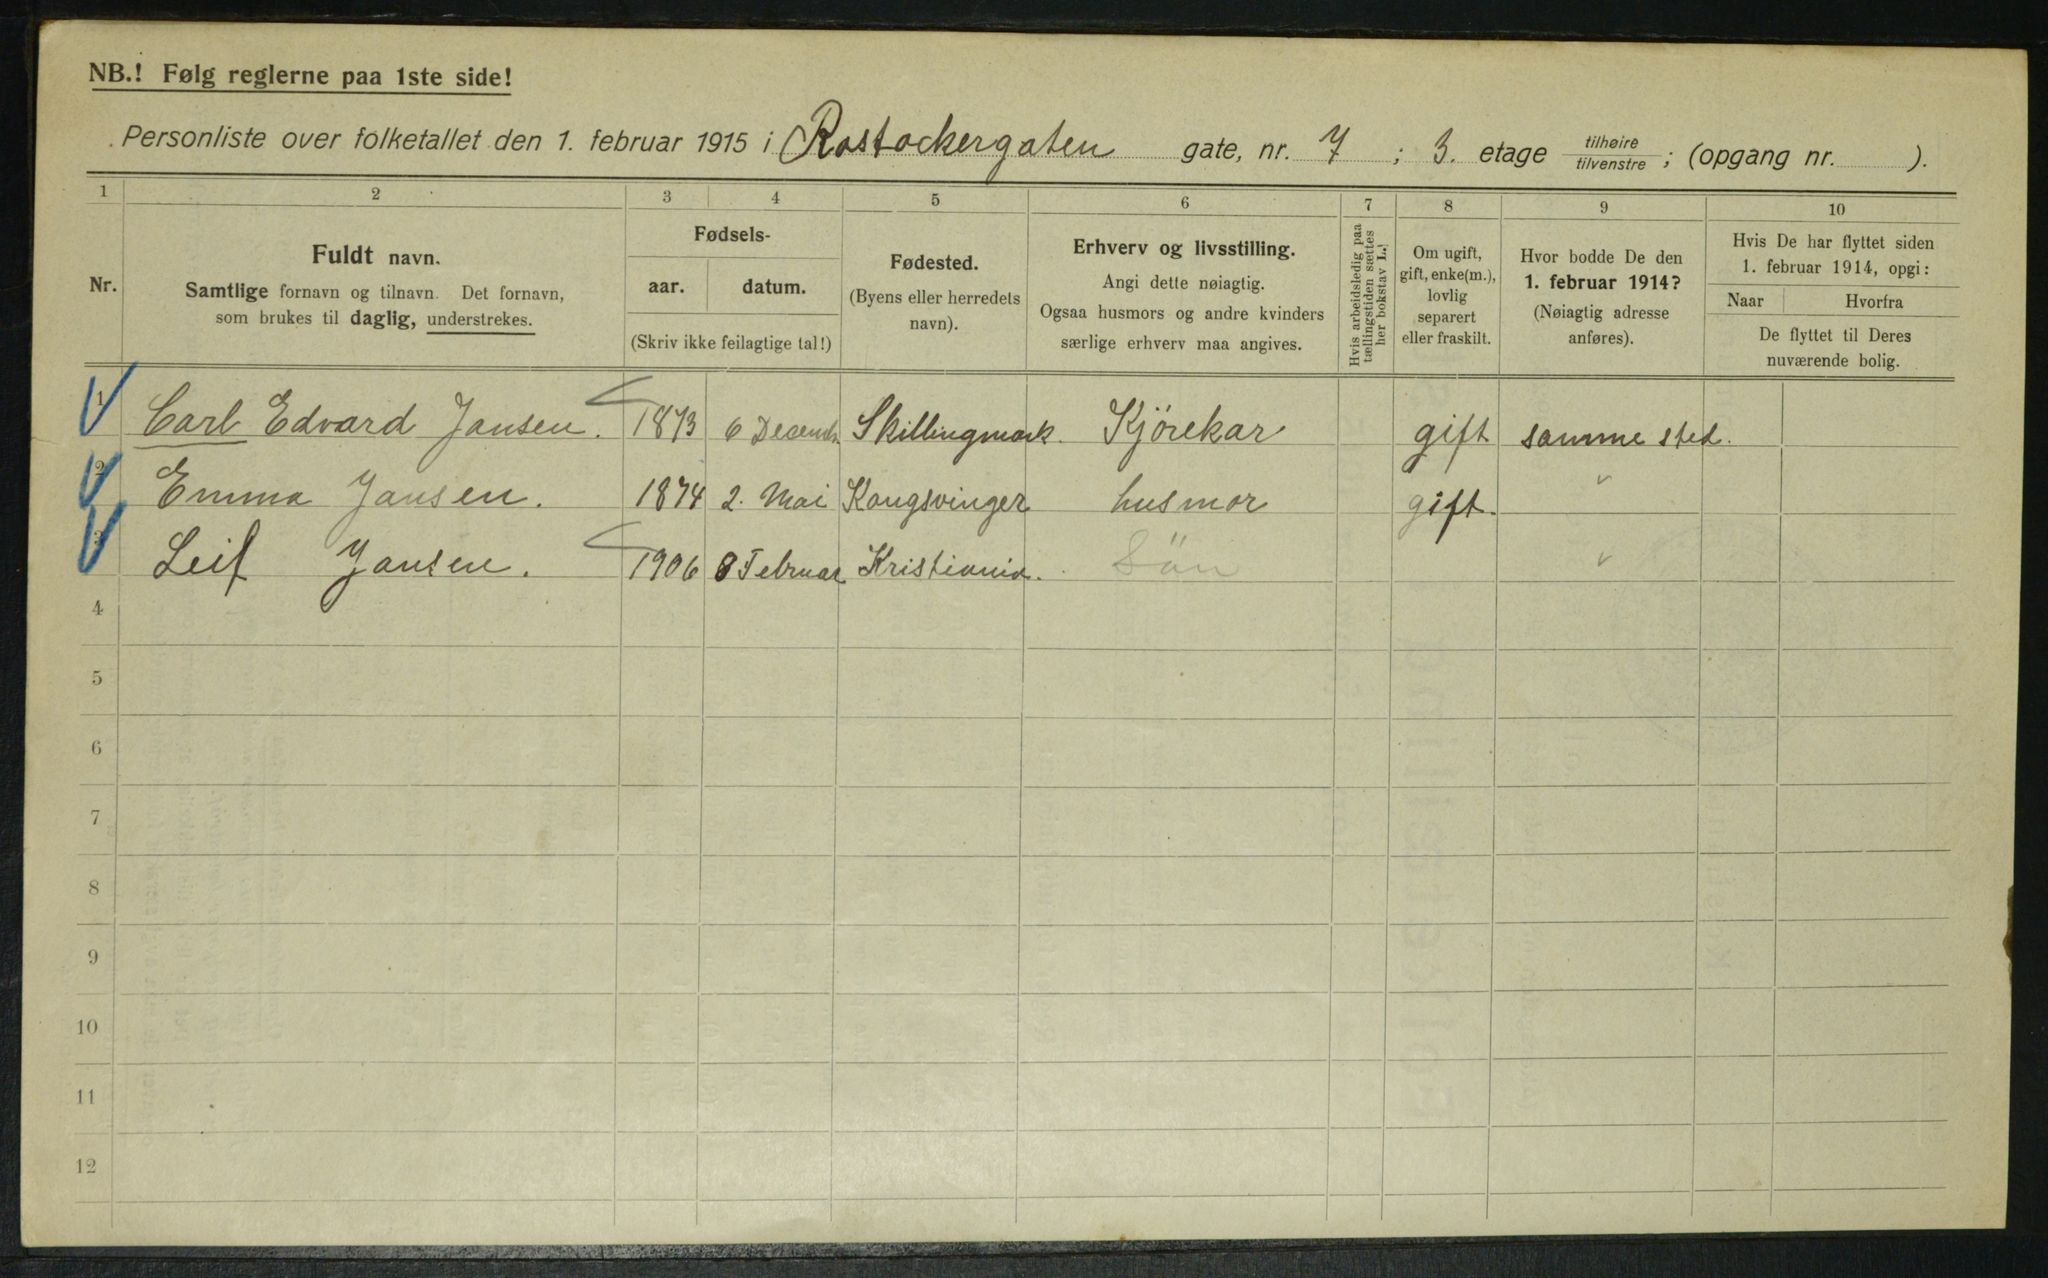 NB.! Følg reglerne paa 1ste side!
Personliste over folketallet den 1. februar 1915 i Rostockergaten gate, nr. 7 ; 3. etage tilhøire tilvenstre ; (opgang nr. ).
1 2 3 4 5 6 7 8 9 10
Nr.
Fuldt navn.
Samtlige fornavn og tilnavn. Det fornavn,
som brukes til daglig, understrekes.
Fødsels-
aar. datum.
(Skriv ikke feilagtige tal!)
Fødested.
(Byens eller herredets
navn).
Erhverv og livsstilling.
Angi dette nøiagtig.
Ogsaa husmors og andre kvinders
særlige erhverv maa angives.
Hvis arbeidsledig paa
tællingstiden sættes
her bokstav L.!
Om ugift,
gift, enke(m.),
lovlig
separert
eller fraskilt.
Hvor bodde De den
1. februar 1914?
(Nøiagtig adresse
anføres).
Hvis De har flyttet siden
1. februar 1914, opgi:
Naar Hvorfra
De flyttet til Deres
nuværende bolig.
1 Carl Edvard Jansen. 1873 6 Decemb. Skillingmark. Kjörekar gift samme sted.
2 Emma Jansen. 1874 2. Mai Kongsvinger husmor gift. "
3 Leif Jansen. 1906 8 Februar Kristiania. Sön "
4
5
6
7
8
9
10
11
12